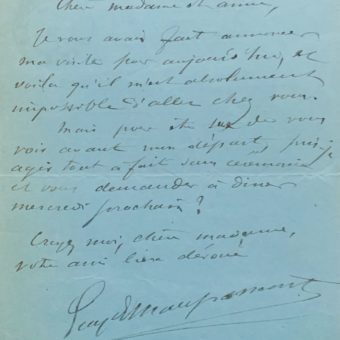 Chère madame et amie,
Je vous avais fait annoncer
ma visite pour aujourd'hui, et
voilà qu'il m'est absolument
impossible d'aller chez vous.
Mais pour être sûr de vous
voir avant mon départ, puis-je
agir tout à fait sans cérémonie
et vous demander à dîner
mercredi prochain ?
Croyez moi, chère madame,
votre ami bien dévoué
Guy de Maupassant